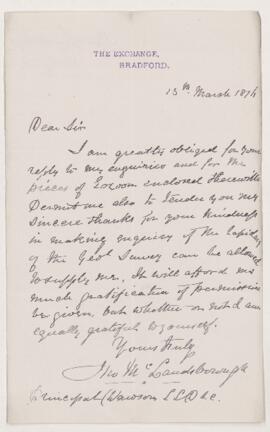 THE EXCHANGE,
BRADFORD.
13th March 1874
Dear Sir
I am greatly obliged for your
reply to my enquiries and for the
pieces of Eozoon enclosed therewith
Permit me also to tender you my
sincere thanks for your kindness
in making enquiry if the lapidary
of the Geol Survey can be allowed
to supply me. It will afford me
much gratification if permission
be given, but whether or not I am
equally grateful to yourself.
Yours truly
Jno McLandsborough
Principal Dawson LLD &c.